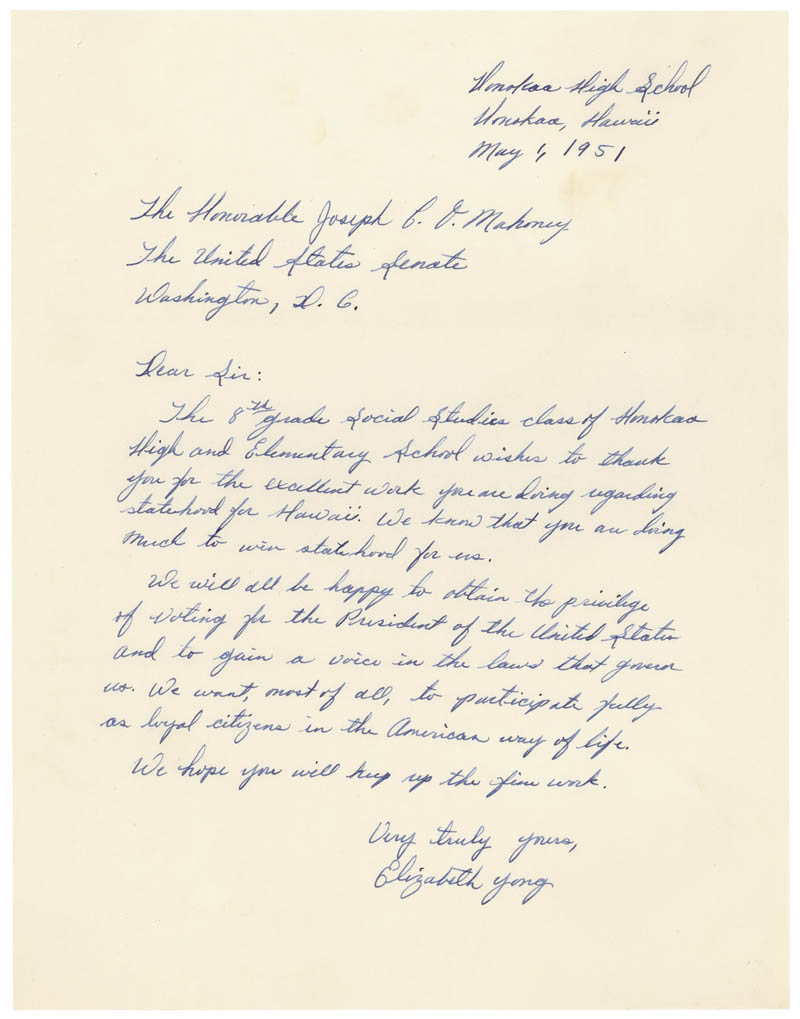 Honokaa High School
Honokaa, Hawaii
May 1, 1951
The Honorable Joseph C. O. Mahoney
The United States Senate
Washington, D. C.
Dear Sir:
The 8th grade Social Studies class of Honokaa
High and Elementary School wishes to thank
you for the excellent work you are doing regarding
statehood for Hawaii. We know that you are doing
much to win statehood for us.
We will all be happy to obtain the privilege
of voting for the President of the United States
and to gain a voice in the laws that govern
us. We want, most of all, to participate fully
as loyal citizens in the American way of life.
We hope you will keep up the fine work.
Very truly yours,
Elizabeth Yong